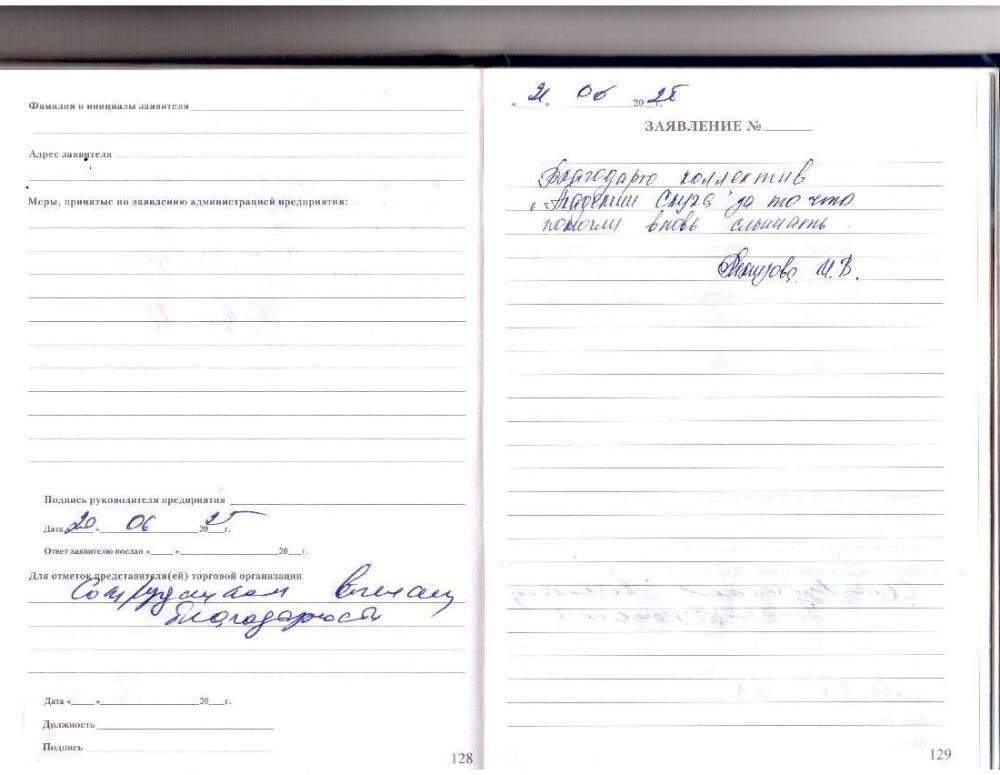 Фамилия и инициалы заявителя
Адрес заявителя
Меры, принятые по заявлению администрацией предприятия:
Подпись руководителя предприятия
Дата «20» 06 2025 г.
Ответ заявителю послан «___» ___ 20__г.
Для отметок представителя(ей) торговой организации
Сотрудникам
благодарность
Дата «___» ___ 20__г.
Должность
Подпись
128
«21» 06 2025 г.
ЗАЯВЛЕНИЕ №
Благодарю коллектив
"Академии Слуха" за то что
помогли вновь слышать.
И.В.
129